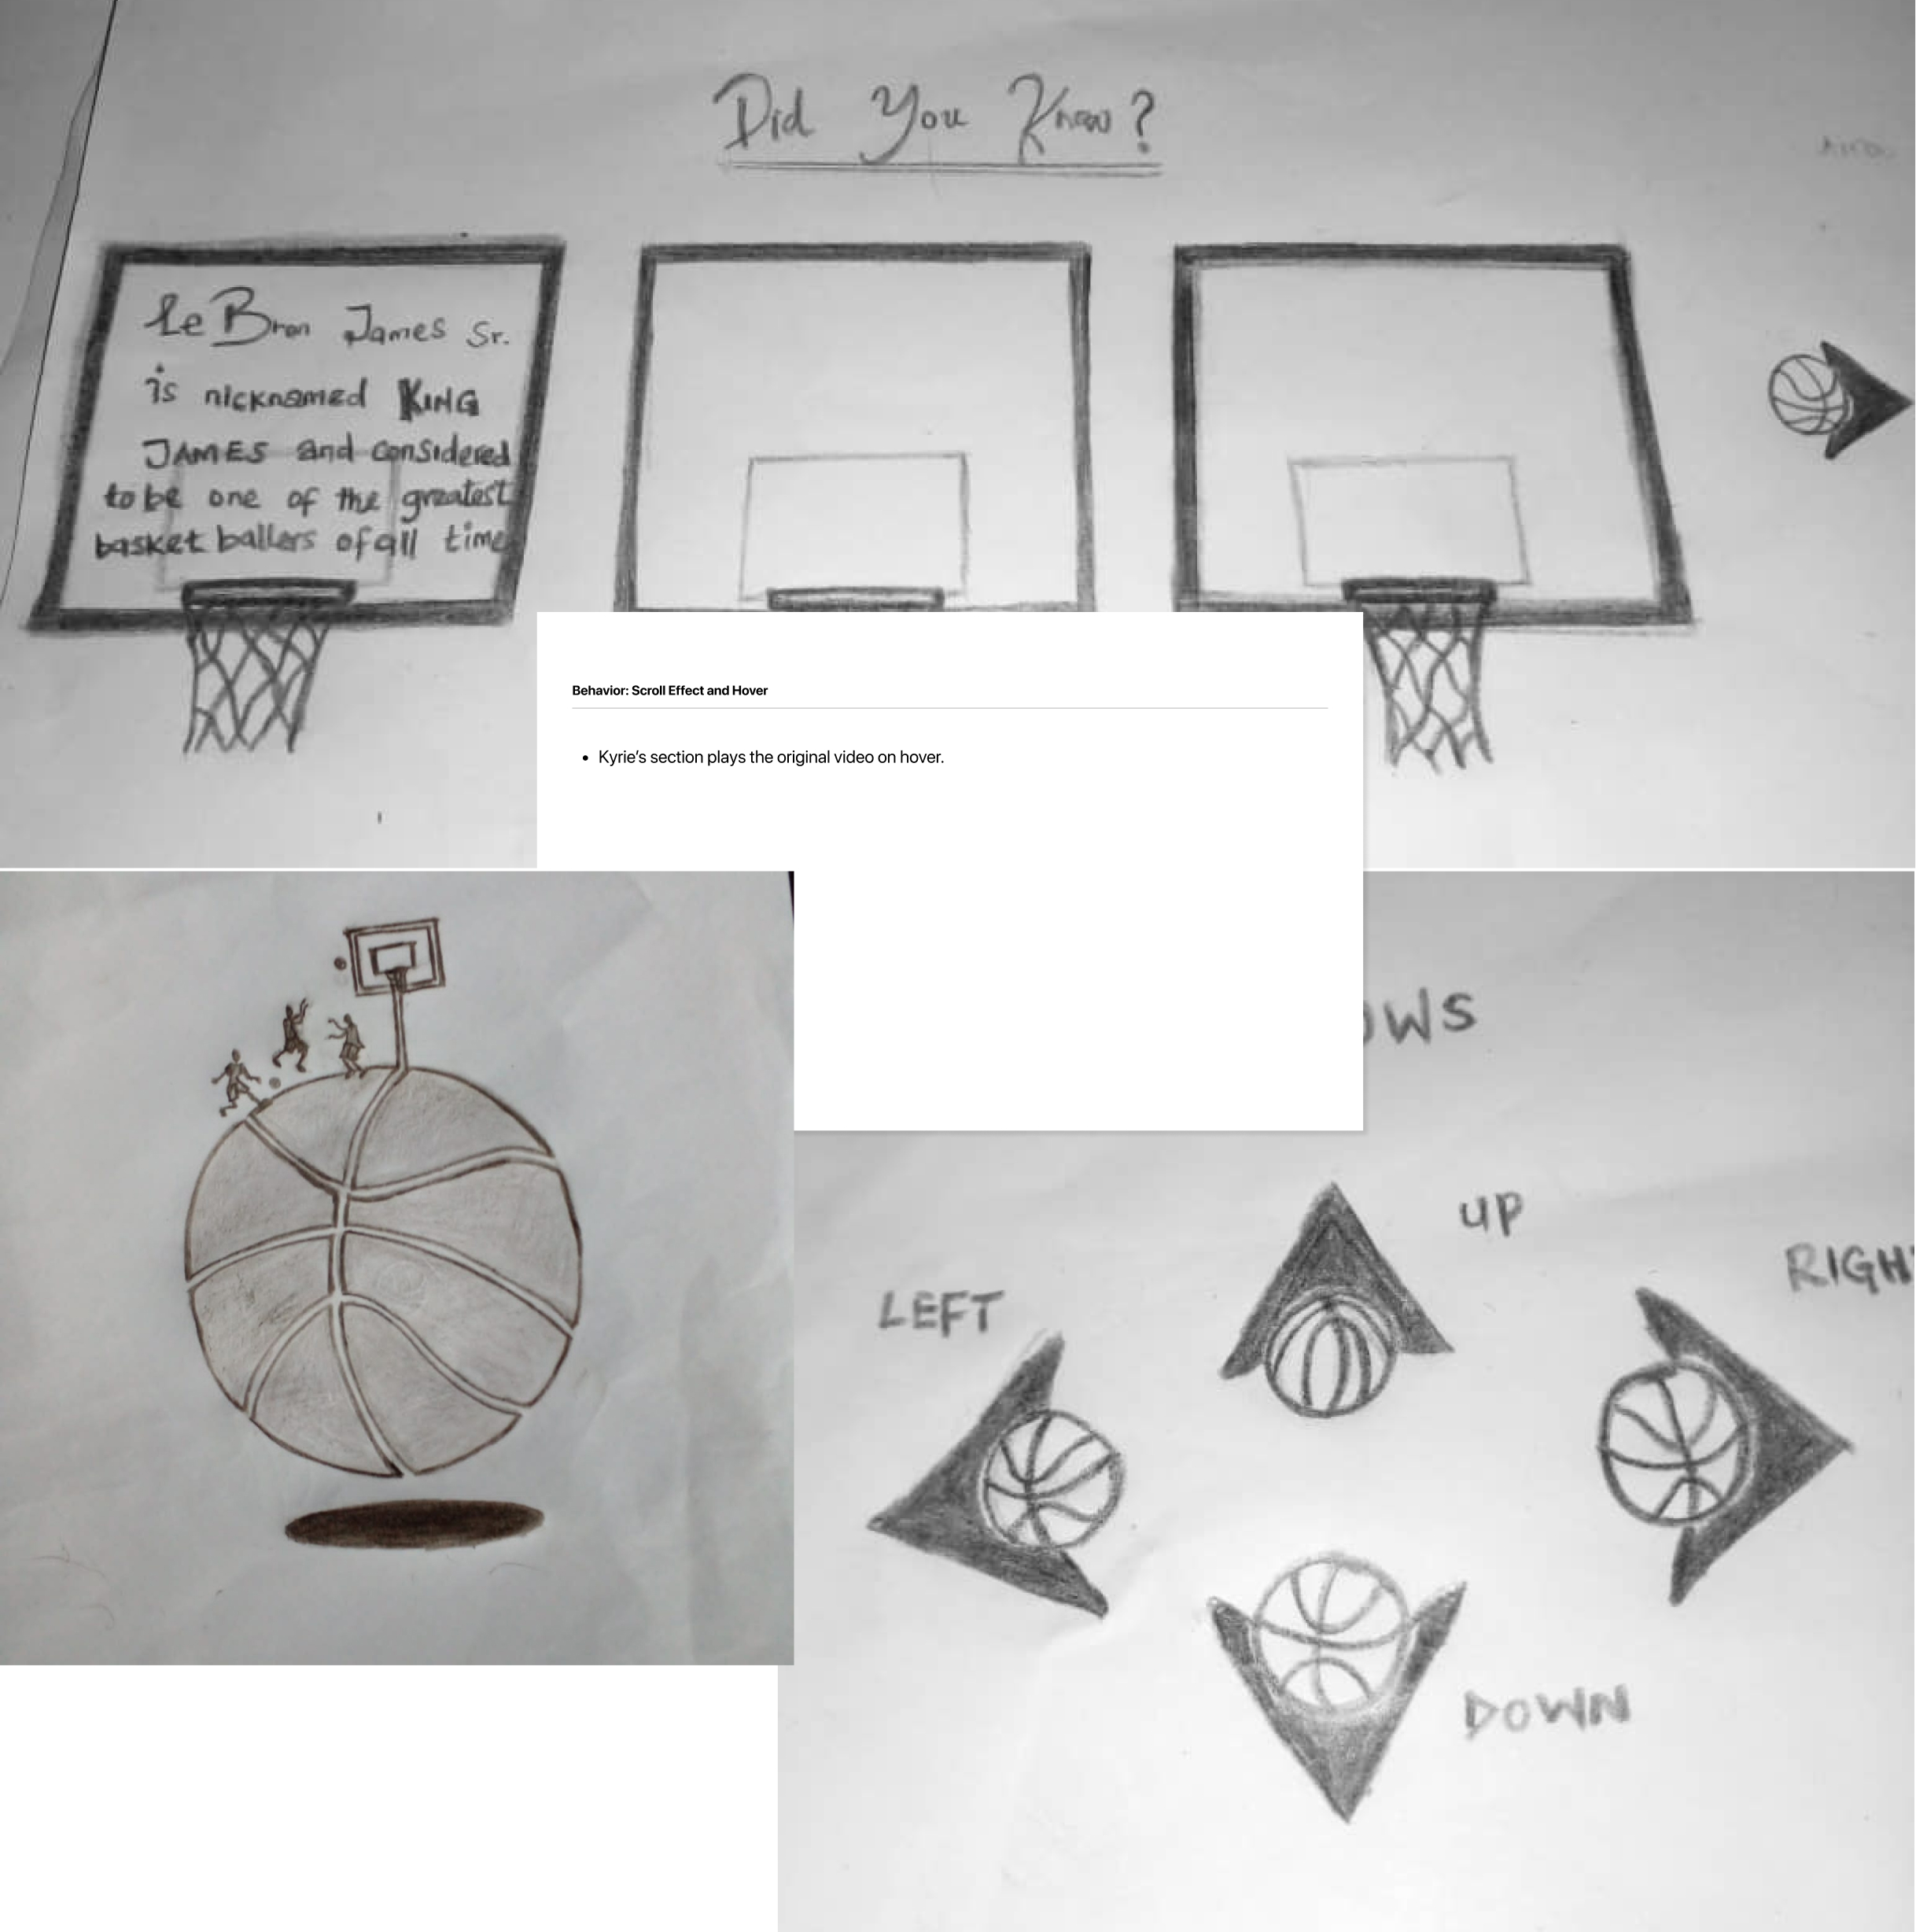 Did You Know?
LeBron James Sr.
is nicknamed KING
JAMES and considered
to be one of the greatest
basket ballers of all time
Behavior: Scroll Effect and Hover
• Kyrie’s section plays the original video on hover.
OWS
UP
RIGH
LEFT
DOWN